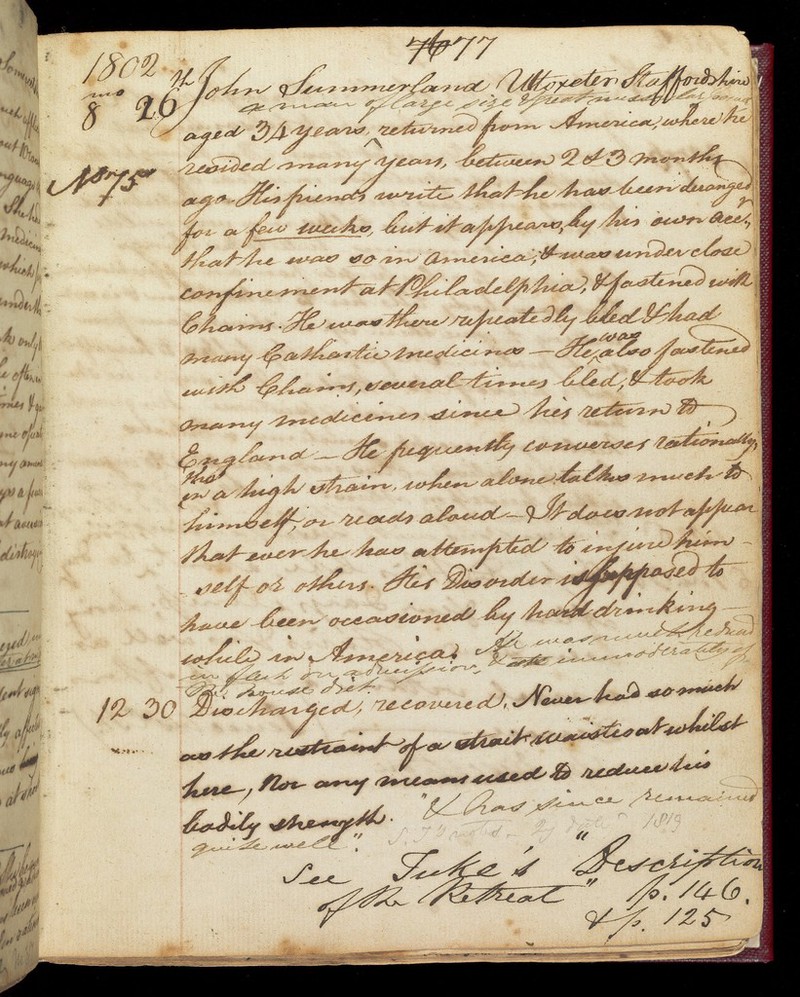 76 77
1802
mo
8 26
No. 75
John Summerland Uttoxeter Staffordshire
a man of large size & great muscular
aged 34 years, returned from America, where he
resided many years, between 2 & 3 months
ago. His friends write that he has been deranged
for a few weeks, but it appears, by his own acct,
that he was so in America, & was under close
confinement at Philadelphia, & fastened with
Chains. He was there repeatedly bled & had
many Cathartic medicines — He was also fastened
with Chains, several times bled, & took
many medicines since his return to
England — He frequently converses rationally,
tho'
in a high strain, when alone talks much to
himself, or reads aloud — It does not appear
that ever he has attempted to injure him-
self or others. His Disorder is supposed to
have been occasioned by hard drinking —
while in America. He was much reduced
in flesh on admission, & ate immoderately of
the house diet.
12 30 Discharged, recovered, Never had so much
as the restraint of a strait waistcoat whilst
here, Nor any means used to reduce his
bodily strength. "& has since remained
quite well".
1819
See Tuke's "Description
of the Retreat" p. 146.
& p. 125